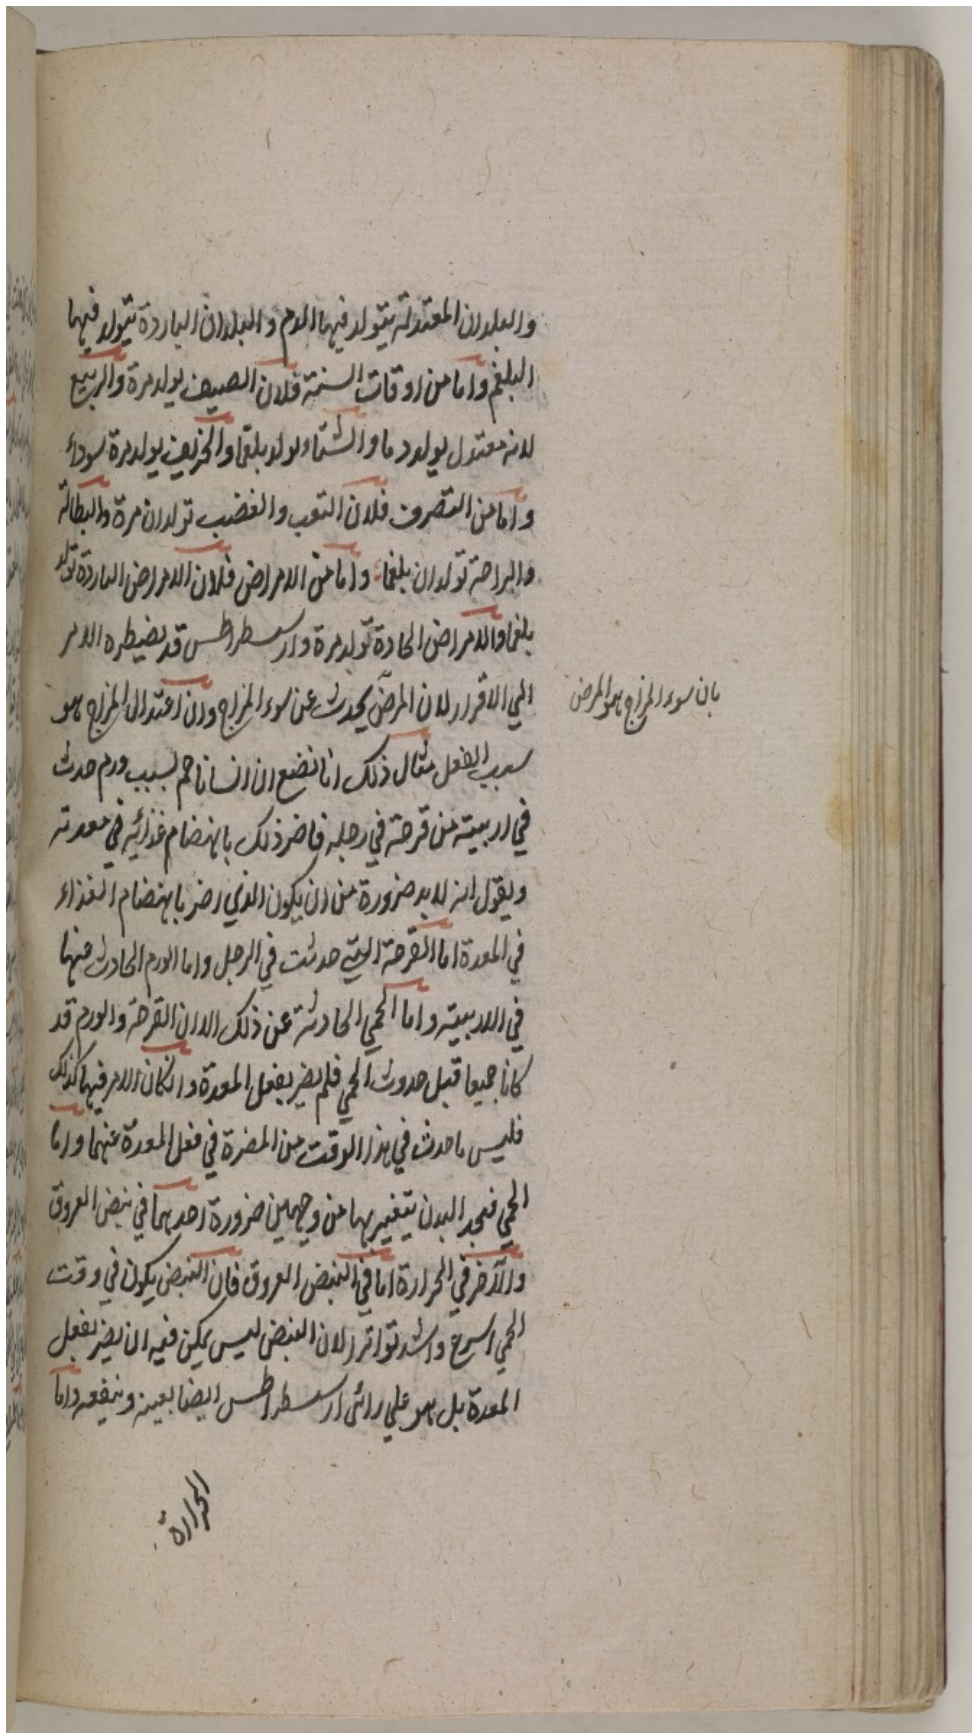 والبلدان المعتدلة يتولد فيها الدم والبلدان الباردة يتولد فيها
البلغم واما من اوقات السنة فلان الصيف يولد مرة والربيع
لانه معتدل يولد دما والشتاء يولد بلغما والخريف يولد مرة سوداء
واما من التصرف فلان التعب والغضب تولدان مرة والبطالة
والراحة تولدان بلغما واما من الامراض فلان الامراض الباردة تولد
بلغما والامراض الحادة تولد مرة وارسطراطس قد يضيطره الامر
الي الاقرار لان المرض يحدث عن سوء المزاج وان اعتدال المزاج هو
بان سوء المزاج هو المرض
سبب الفعل مثال ذلك انا نضع ان انسانا حم بسبب ورم حدث
في اربيته من قرحة في رجله فاضر ذلك بانهضام غذائه في معدته
ويقول انه لا بد ضرورة من ان يكون الذي اضر بانهضام الغذاء
في المعدة اما القرحة التي حدثت في الرجل واما الورم الحادث عنها
في الاربيته واما الحمي الحادثة عن ذلك الا ان القرحة والورم قد
كانا جميعا قبل حدوث الحمي فلم يضر بفعل المعدة وان كان الامر فيهما كذلك
فليس ما حدث في هذا الوقت من المضرة في فعل المعدة عنهما واما
الحمي فنجد البدن يتغير بها من وجهين ضرورة احدهما في نبض العروق
والاخر في الحرارة اما في النبض العروق فان النبض يكون في وقت
الحمي اسرع واشد تواترا لان النبض ليس يمكن فيه ان يضر بفعل
المعدة بل هو علي رائ ارسطراطس ايضا بعينه وينفعه واما
الحرارة